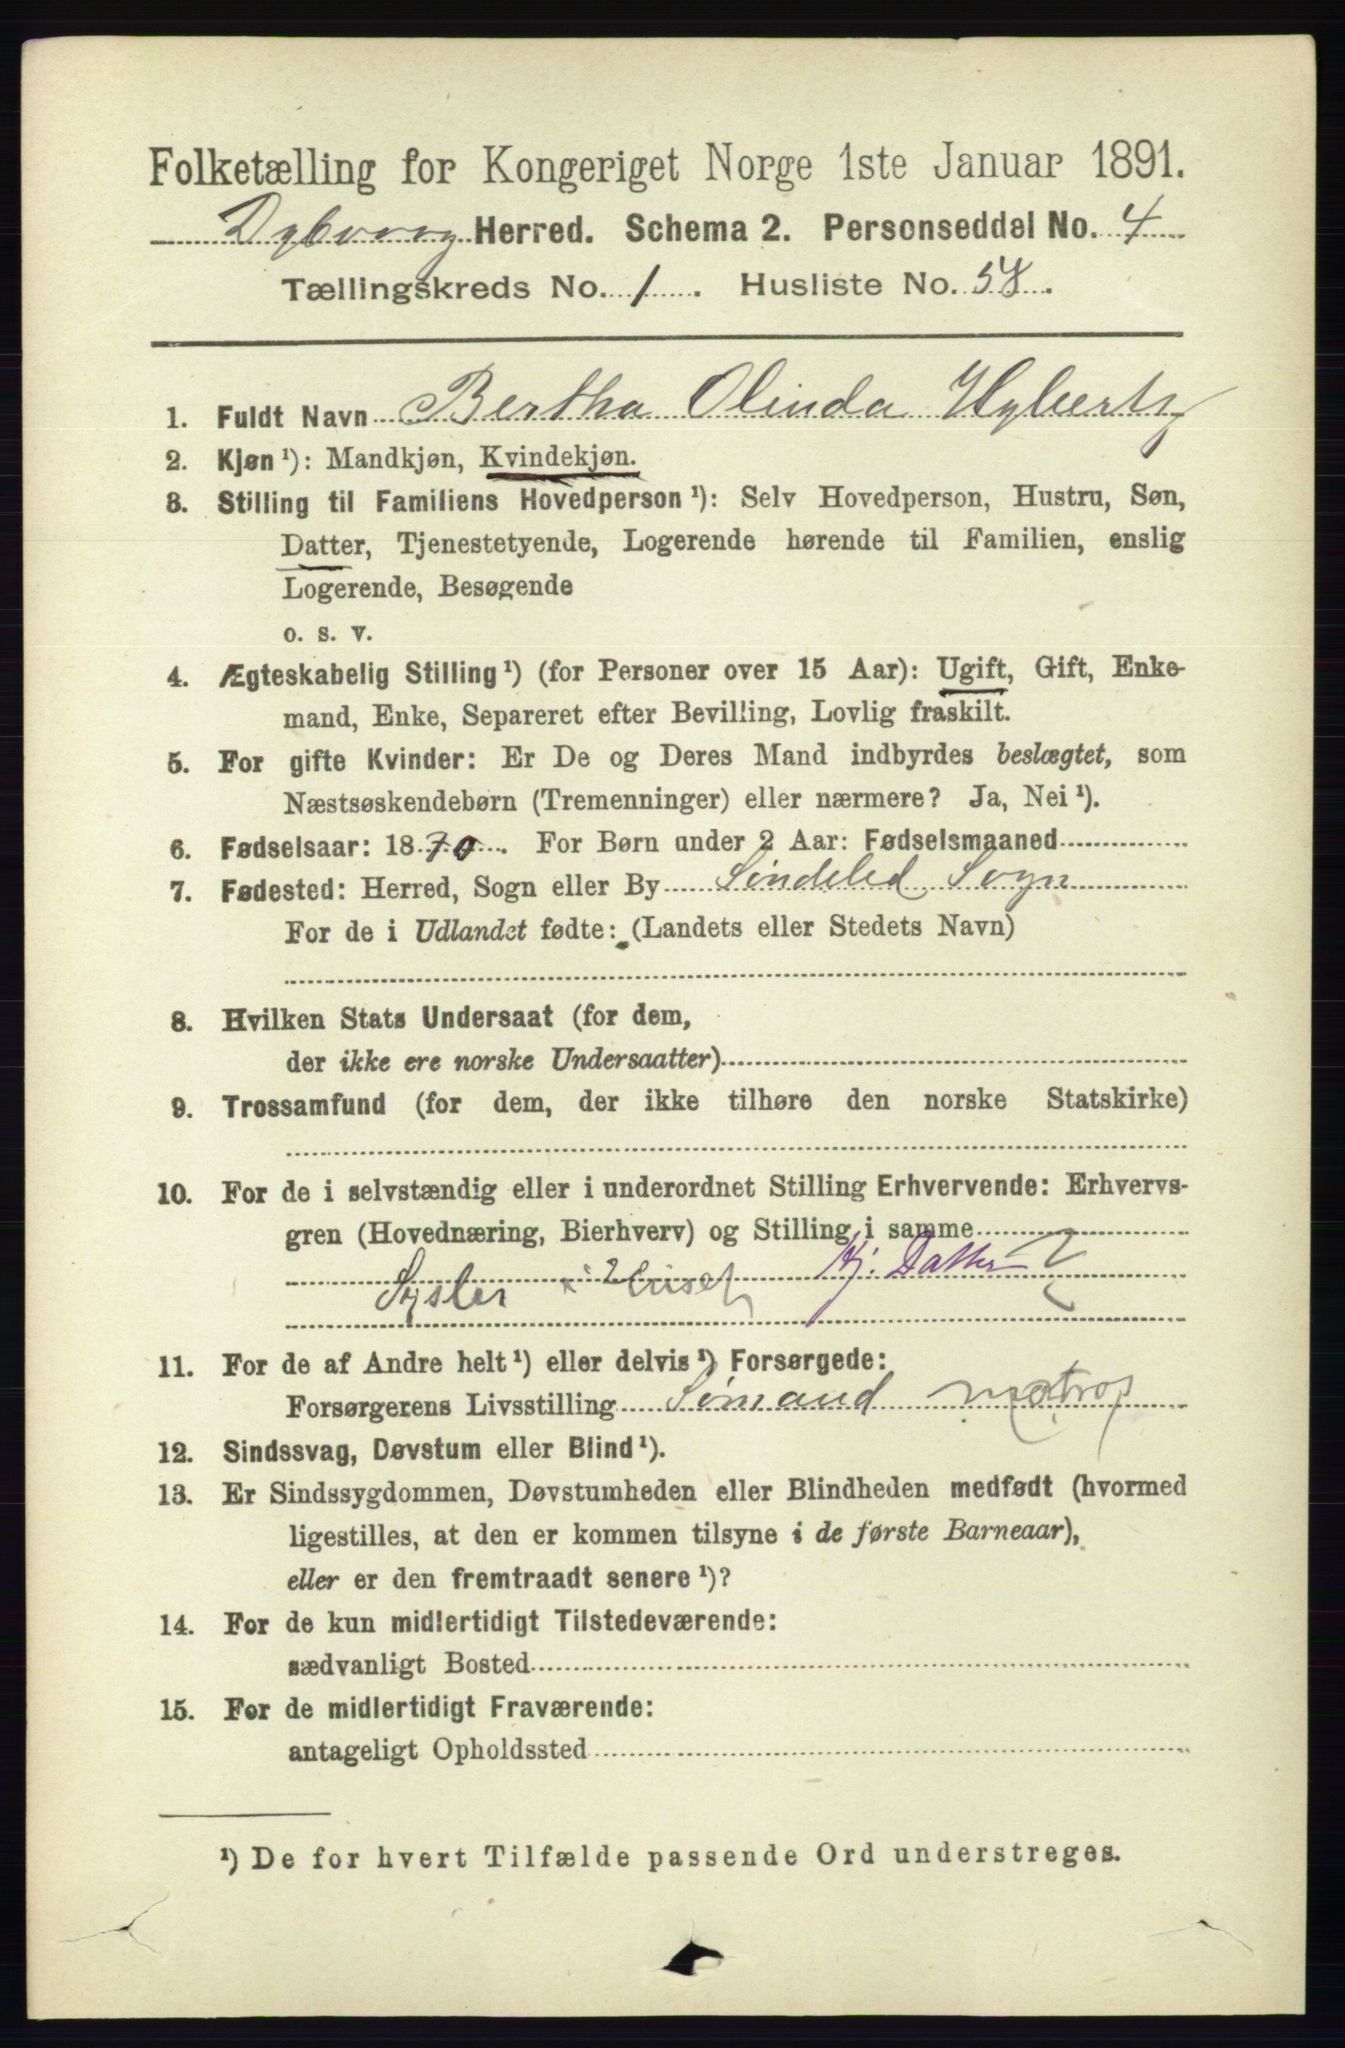 Folketælling for Kongeriget Norge 1ste Januar 1891.
Dybvaag Herred. Schema 2. Personseddel No. 4
Tællingskreds No. 1. Husliste No. 58.
1. Fuldt Navn Bertha Olinda Hyberts
2. Kjøn ¹): Mandkjøn, Kvindekjøn.
3. Stilling til Familiens Hovedperson ¹): Selv Hovedperson, Hustru, Søn,
Datter, Tjenestetyende, Logerende hørende til Familien, enslig
Logerende, Besøgende
o. s. v.
4. Ægteskabelig Stilling ¹) (for Personer over 15 Aar): Ugift, Gift, Enke-
mand, Enke, Separeret efter Bevilling, Lovlig fraskilt.
5. For gifte Kvinder: Er De og Deres Mand indbyrdes beslægtet, som
Næstsøskendebørn (Tremenninger) eller nærmere? Ja, Nei ¹).
6. Fødselsaar: 1870. For Børn under 2 Aar: Fødselsmaaned
7. Fødested: Herred, Sogn eller By Søndeled Sogn
For de i Udlandet fødte: (Landets eller Stedets Navn)
8. Hvilken Stats Undersaat (for dem,
der ikke ere norske Undersaatter)
9. Trossamfund (for dem, der ikke tilhøre den norske Statskirke)
10. For de i selvstændig eller i underordnet Stilling Erhvervende: Erhvervs-
gren (Hovednæring, Bierhverv) og Stilling i samme
Sysler i Huset Hj. Datter
11. For de af Andre helt ¹) eller delvis ¹) Forsørgede:
Forsørgerens Livsstilling Sømand matros
12. Sindssvag, Døvstum eller Blind ¹).
13. Er Sindssygdommen, Døvstumheden eller Blindheden medfødt (hvormed
ligestilles, at den er kommen tilsyne i de første Barneaar),
eller er den fremtraadt senere ¹)?
14. For de kun midlertidigt Tilstedeværende:
sædvanligt Bosted
15. For de midlertidigt Fraværende:
antageligt Opholdssted
¹) De for hvert Tilfælde passende Ord understreges.